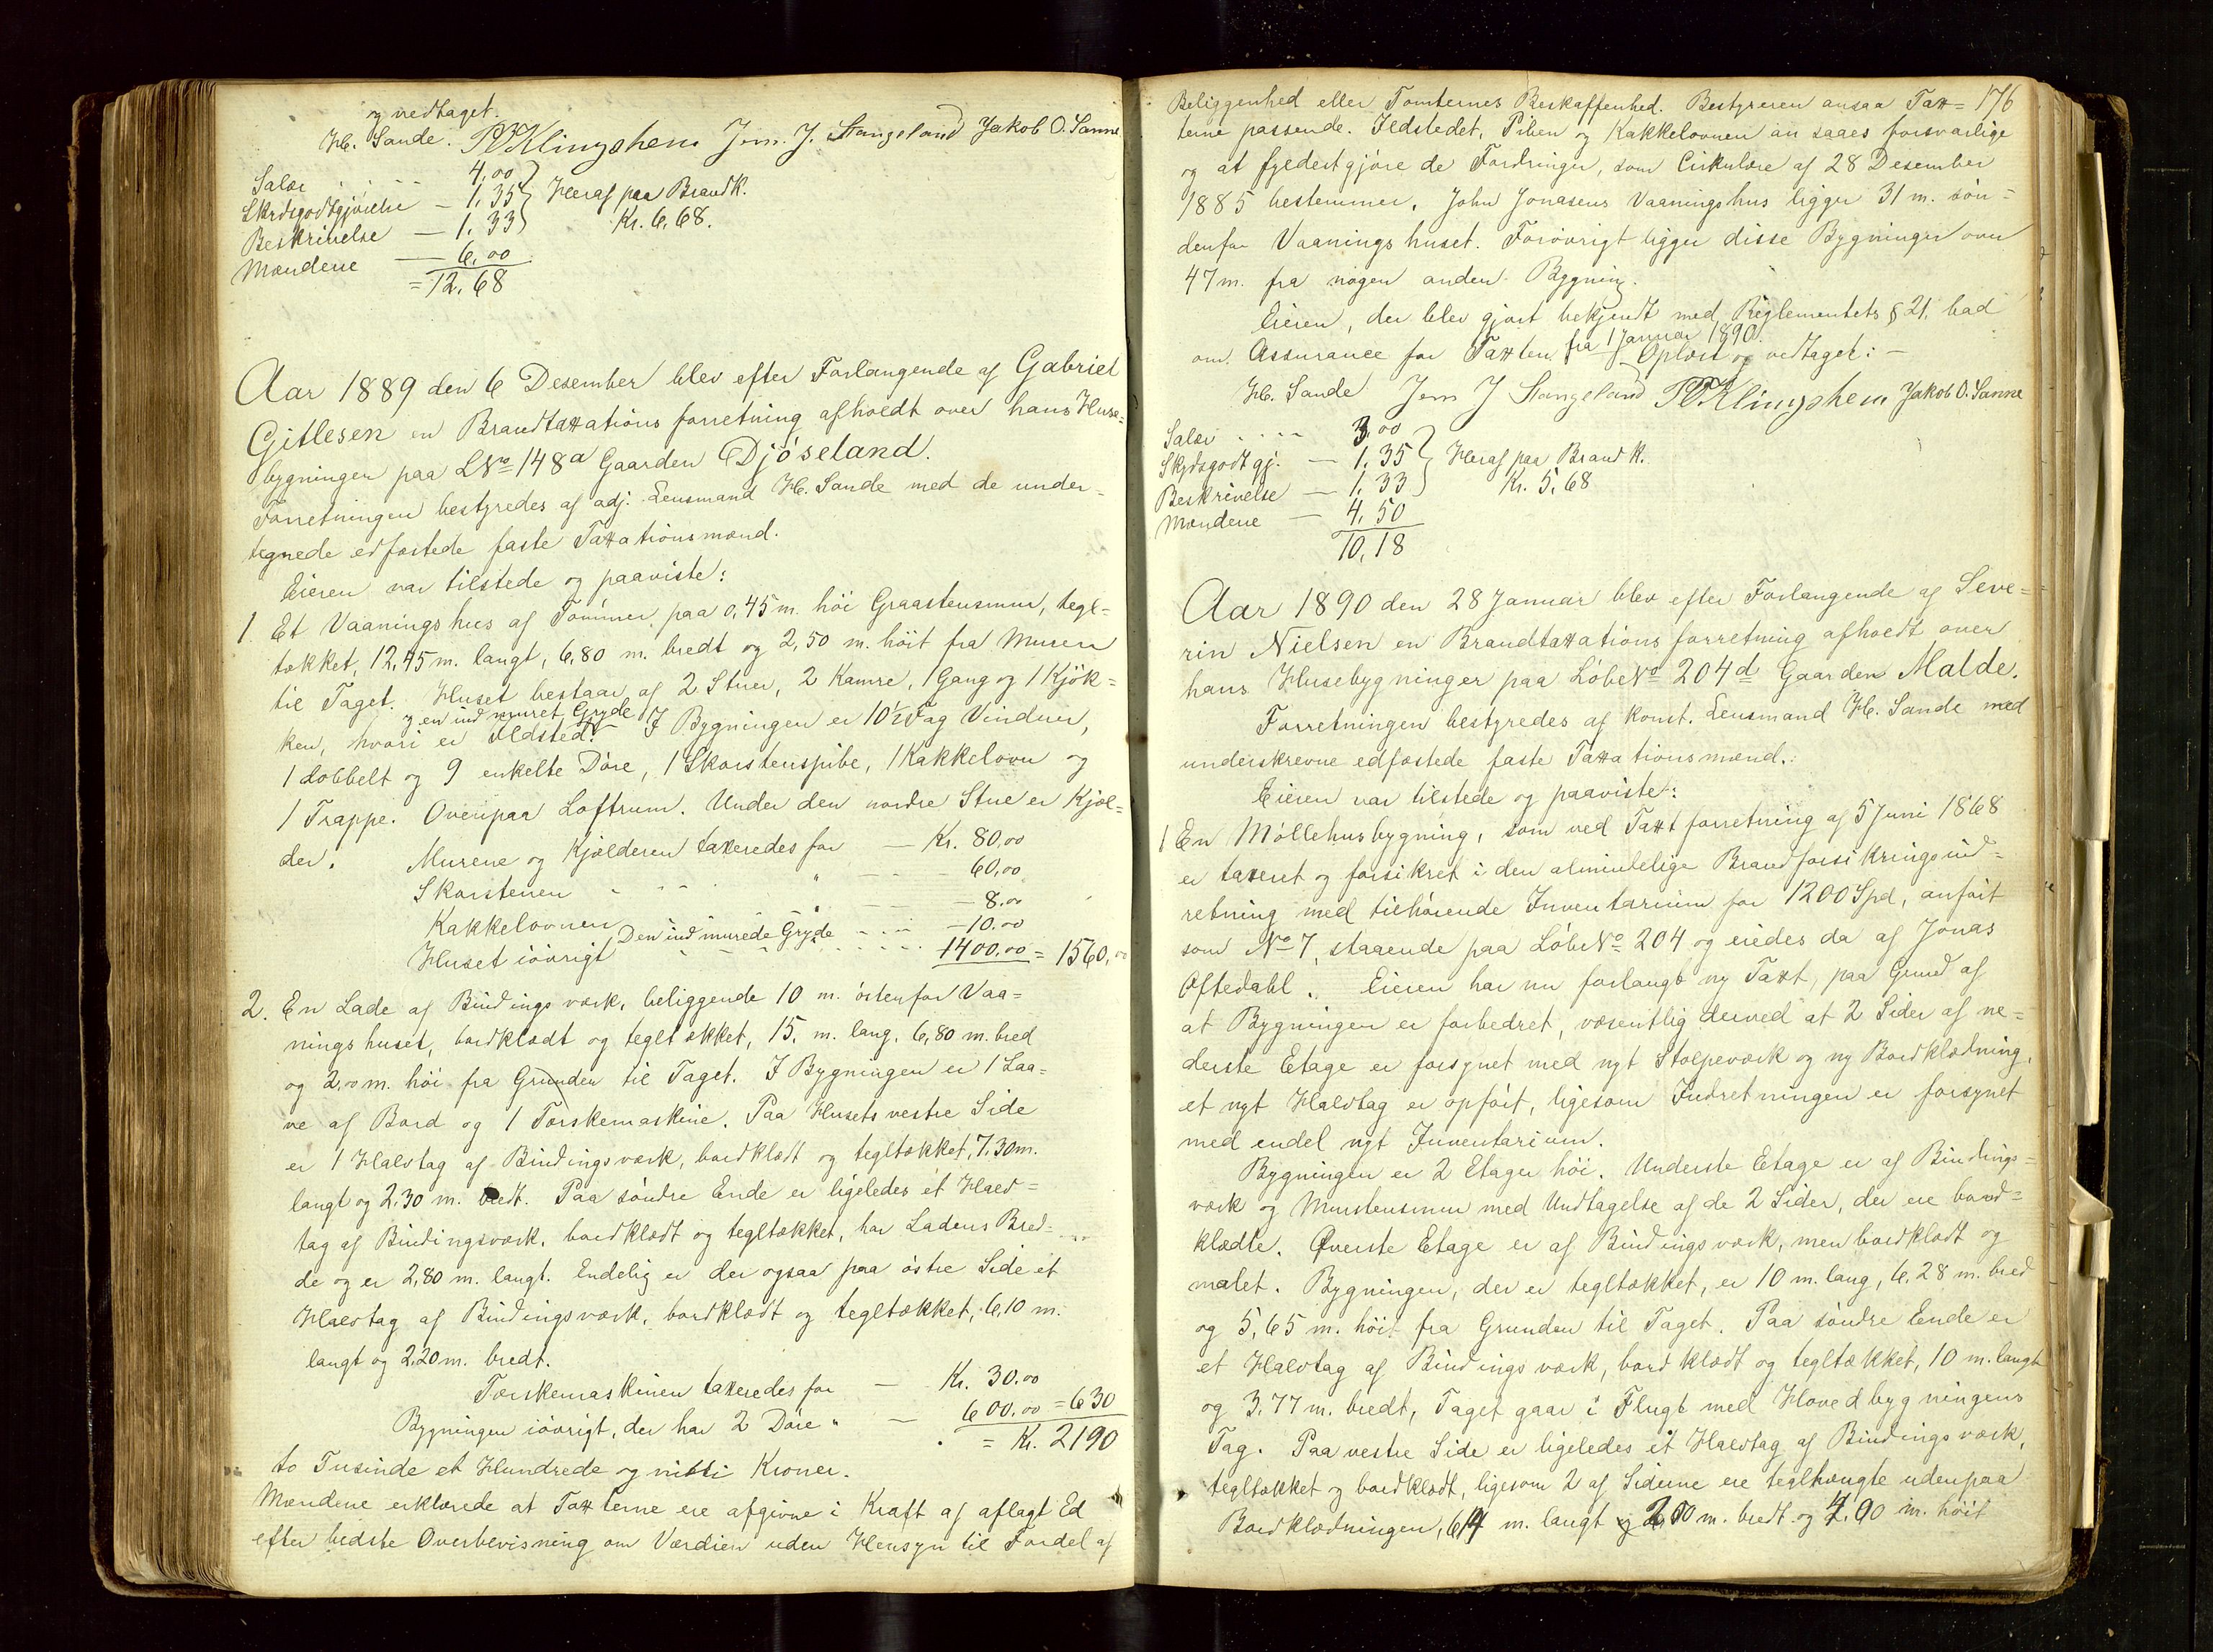 og vedtaget.
H. Sande. Jem. J. Stangeland Jakob O. Sanne
Salær . . -- 4,00
Skydsgodtgjörelse — 1,35 Heraf paa Brandk.
Beskrivelse — 1,33 Kr. 6,68.
Mændene — 6,00
= 12,68
Aar 1889 den 6 Desember blev efter Forlangende af Gabriel
Gitlesen en Brandtaxtations forretning afholdt over hans Huse=
bygninger paa LNo 148a Gaarden Djöseland.
Forretningen bestyredes af adj. Lensmand H. Sande med de under-
tegnede edfæstede faste Taxtationsmænd.
Eieren var tilstede og paaviste:
1. Et Vaaningshus af Tömmer, paa 0,45 m. höi Graastensmur, tegl-
tækket, 12,45 m. langt, 6,80 m. bredt og 2,50 m. höit fra Muren
til Taget. Huset bestaar af 2 Stuer, 2 Kamre, 1 Gang og 1 Kjök=
og en indmuret Gryde
ken, hvori er Ildsted. I Bygningen er 10½ Fag Vinduer,
1 dobbelt og 9 enkelte Döre, 1 Skorstenspibe, 1 Kakkelovn og
1 Trappe. Ovenpaa Loftrum. Under den nordre Stue er Kjæl=
der. Murene og Kjælderen taxeredes for — Kr. 80,00
Skorstenen - - - " - - 60,00
Kakkelovnen " — — 8,00
Den indmurede Gryde - - - — 10.00
Huset iövrigt - - - - - - 1400.00 = 1560,00
2. En Lade af Bindingsværk, beliggende 10 m. östenfor Vaa=
ningshuset, bordklædt og tegltækket, 15, m. lang, 6,80 m. bred
og 2,00 m. höi fra Grunden til Taget. I Bygningen er 1 Laa=
ve af Bord og 1 Tærskemaskine. Paa Husets vestre Side
er 1 Halvtag af Bindingsværk, bordklædt og tegltækket, 7,30 m.
langt og 2,30 m. bredt. Paa söndre Ende er ligeledes et Halv=
tag af Bindingsværk, bordklædt og tegltækket, har Ladens Bred-
de og er 2,80 m. langt. Endelig er der ogsaa paa östre Side et
Halvtag af Bindingsværk, bordklædt og tegltækket, 6,10 m.
langt og 2.20 m. bredt.
Tærskemaskinen taxeredes for — Kr. 30.00
Bygningen iövrigt, der har 2 Döre " — 600.00 = 630
= Kr. 2190
to Tusinde et Hundrede og nitti Kroner.
Mændene erklærede at Taxterne ere afgivne i Kraft af aflagt Ed
efter bedste Overbevisning om Værdien uden Hensyn til Fordel af
176
Beliggenhed eller Tomternes Beskaffenhed. Bestyreren ansaa Tax=
terne passende. Ildstedet, Piben og Kakkelovnen an saaes forsvarlige
og at fyldestgjöre de Fordringer, som Cirkulære af 28 Desember
1885 bestemmer. John Jonasens Vaaningshus ligger 31 m. sön=
denfor Vaaningshuset. Forövrigt ligger disse Bygninger over
47 m. fra nogen anden Bygning.
Eieren, der blev gjort bekjendt med Reglementets § 21, bad
om Assurance for Taxten fra 1 Januar 1890. Oplæst og vedtaget: —
H. Sande Jem J Stangeland Jakob O. Sanne
Salær . . . . 3,00
Skydsgodtgj. — 1,35 Heraf paa Brandk.
Beskrivelse — 1,33 Kr. 5,68
Mændene — 4,50
10,18
Aar 1890 den 28 Januar blev efter Forlangende af Seve=
rin Nielsen en Brandtaxtations forretning afholdt over
hans Husebygninger paa LöbeNo 204d Gaarden Malde.
Forretningen bestyredes af Konst. Lensmand H. Sande med
underskrevne edfæstede faste Taxtationsmænd.:
Eieren var tilstede og paaviste:
1 En Möllehusbygning, som ved Taxtforretning af 5 Juni 1868
er taxeret og forsikret i den almindelige Brandforsikringsind=
retning med tilhörende Inventarium for 1200 Spd, anfört
som No 7, staaende paa LöbeNo 204 og eiedes da af Jonas
Oftedahl. Eieren har nu forlangt ny Taxt, paa Grund af
at Bygningen er forbedret, væsentlig derved at 2 Sider af ne=
derste Etage er forsynet med nyt Stolpeværk og ny Bordklædning,
et nyt Halvtag er opfört, ligesom Indretningen er forsynet
med endel nyt Inventarium.
Bygningen er 2 Etager höi. Underste Etage er af Bindings=
værk og Murstensmur med Undtagelse af de 2 Sider, der ere bord=
klædte. Överste Etage er af Bindingsværk, men bordklædt og
malet. Bygningen, der er tegltækket, er 10 m. lang, 6,28 m. bred
og 5,65 m. höit fra Grunden til Taget. Paa söndre Ende er
et Halvtag af Bindingsværk, bordklædt og tegltækket, 10 m. langt
og 3,77 m. bredt, Taget gaar i Flugt med Hovedbygningens
Tag. Paa vestre Side er ligeledes et Halvtag af Bindingsværk,
tegltækket og bordklædt, ligesom 2 af Siderne ere teglhængte udenpaa
Bordklædningen, m. langt og m. bredt og 4,90 m. höit